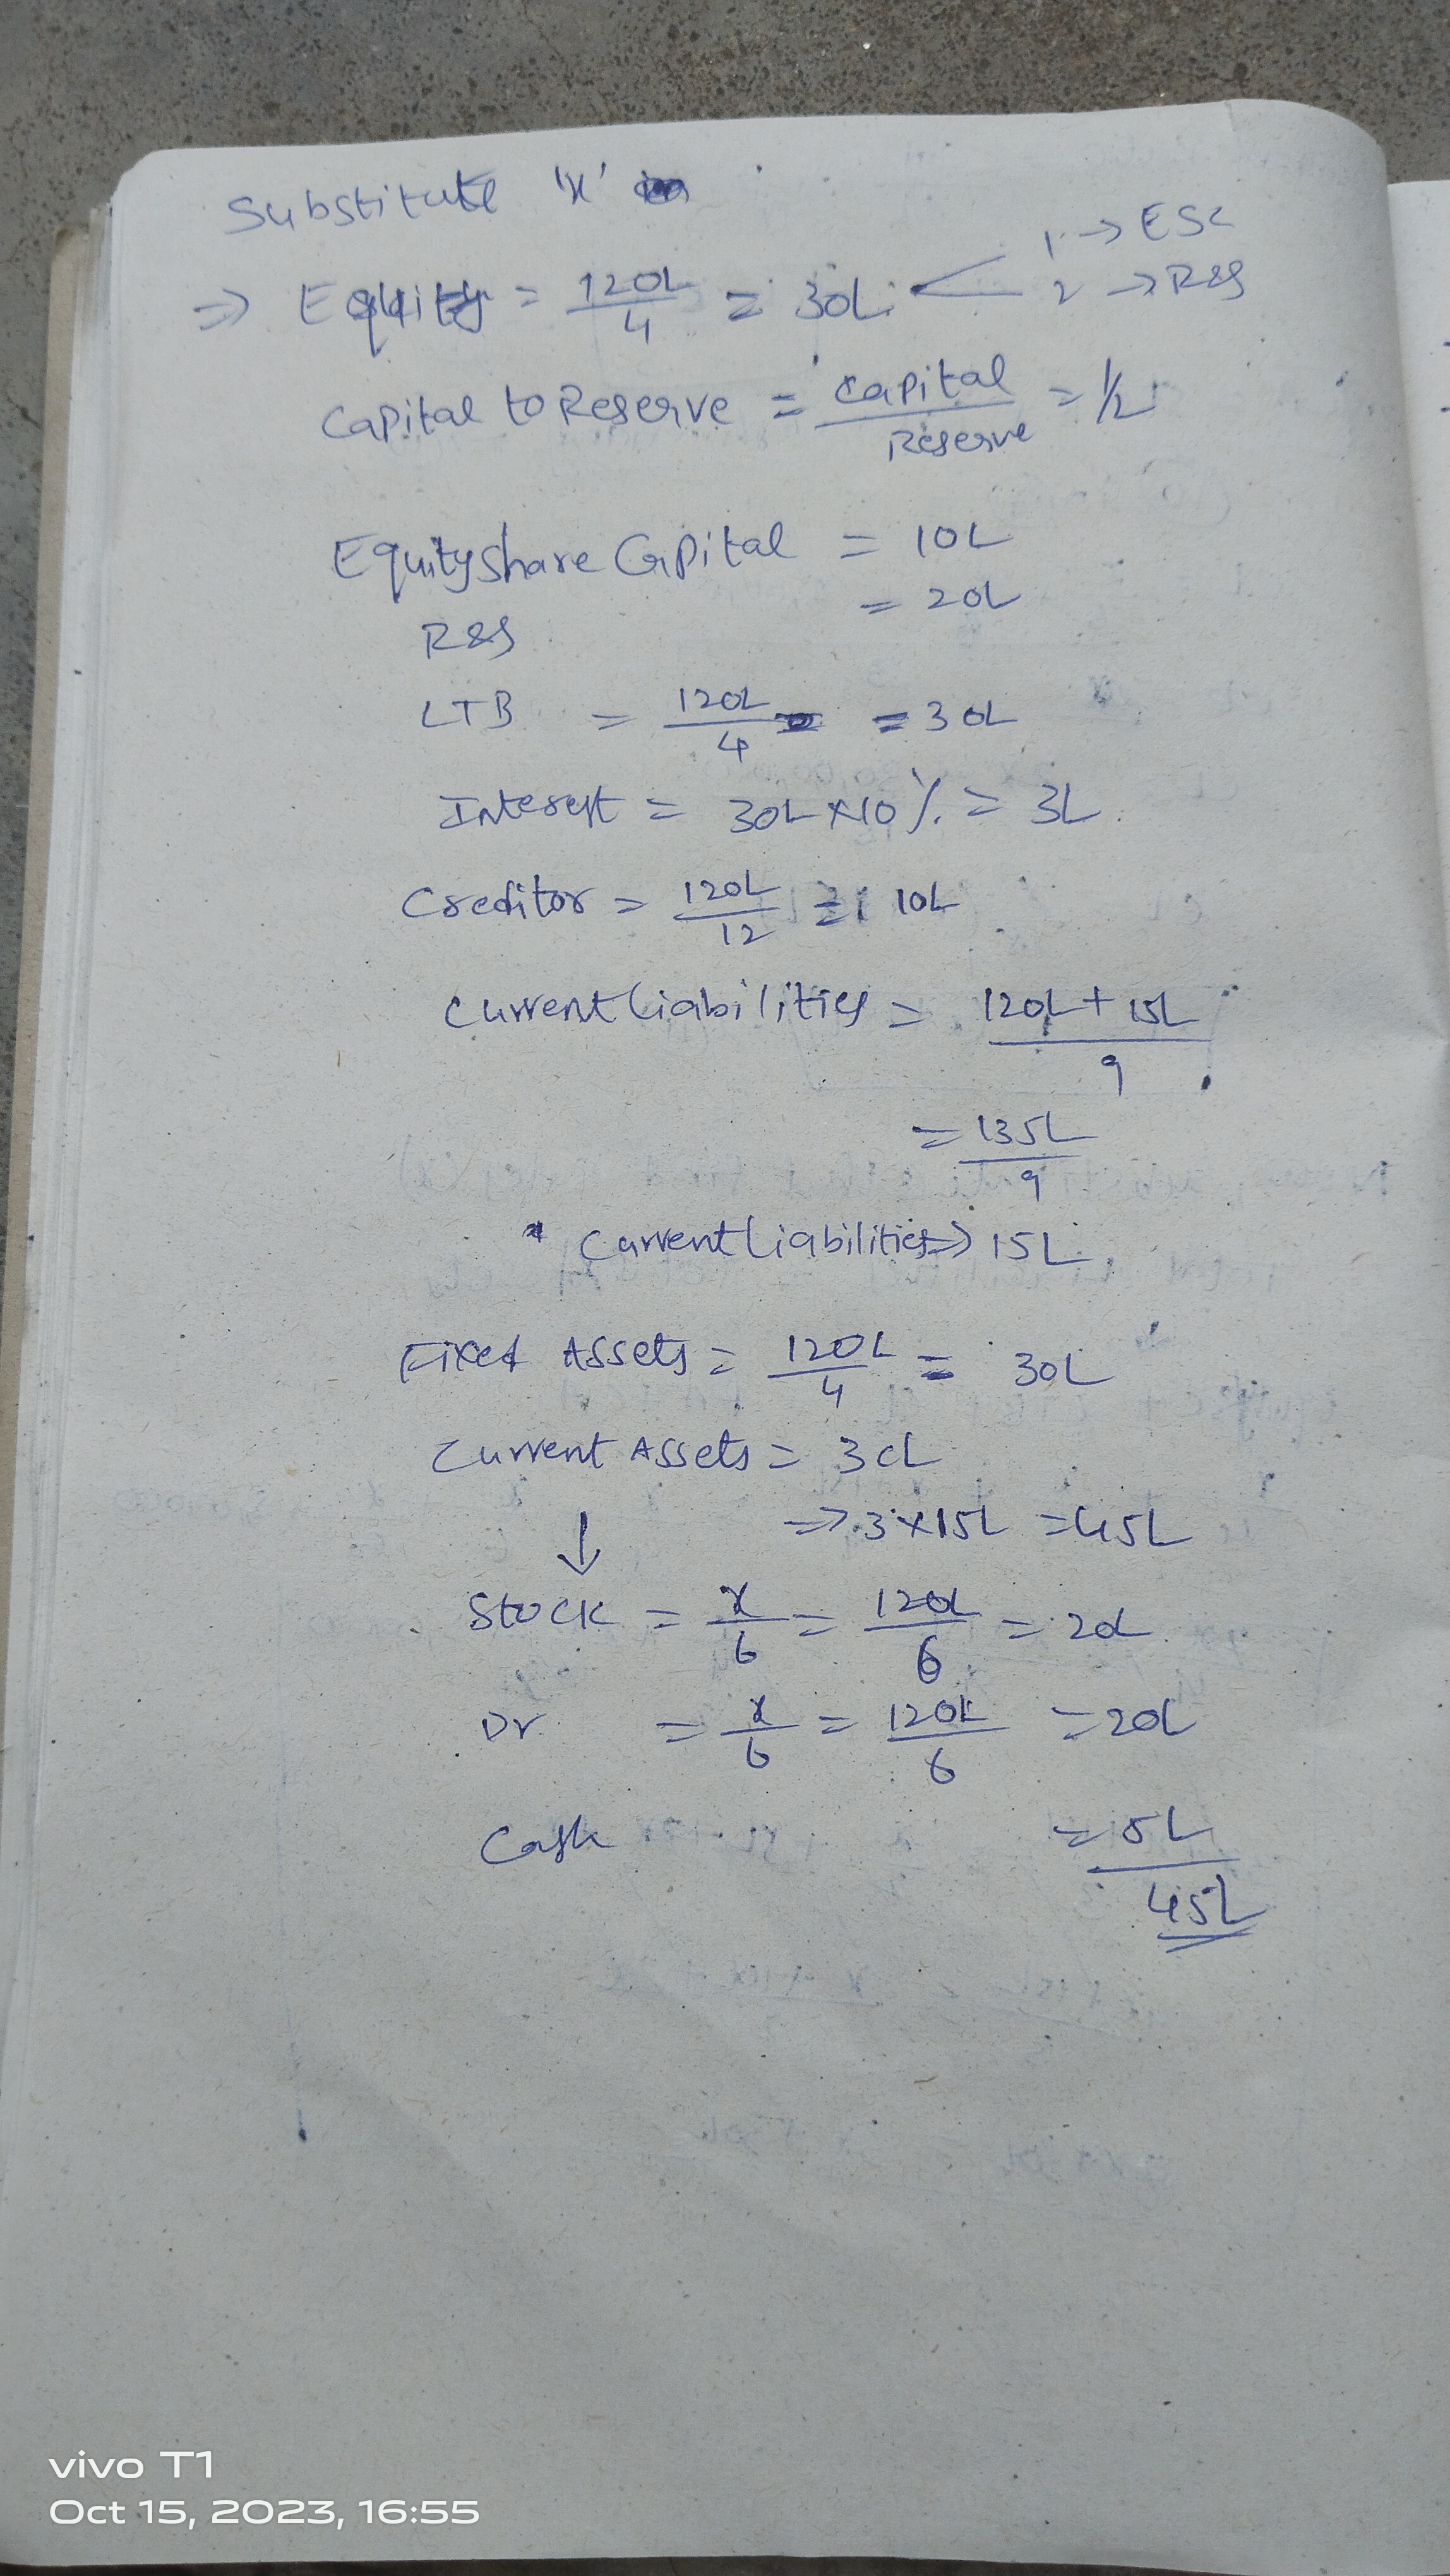 Substitute 'x'
1 → ESC
⇒ Equity = 120L/4 = 30L < 2 → R&S
Capital to Reserve = Capital/Reserve = 1/2
Equity Share Capital = 10L
= 20L
R&S
LTB = 120L/4 = 30L
Interest = 30L × 10% = 3L
Creditor = 120L/12 = 10L
Current Liabilities = 120L + 15L/9
= 135L/9
* Current Liabilities ⇒ 15L
Fixed Assets = 120L/4 = 30L
Current Assets = 3CL
↓ ⇒ 3 × 15L = 45L
Stock = x/6 = 120L/6 = 20L
Dr = x/6 = 120L/6 = 20L
Cash = 5L
45L
vivo T1
Oct 15, 2023, 16:55